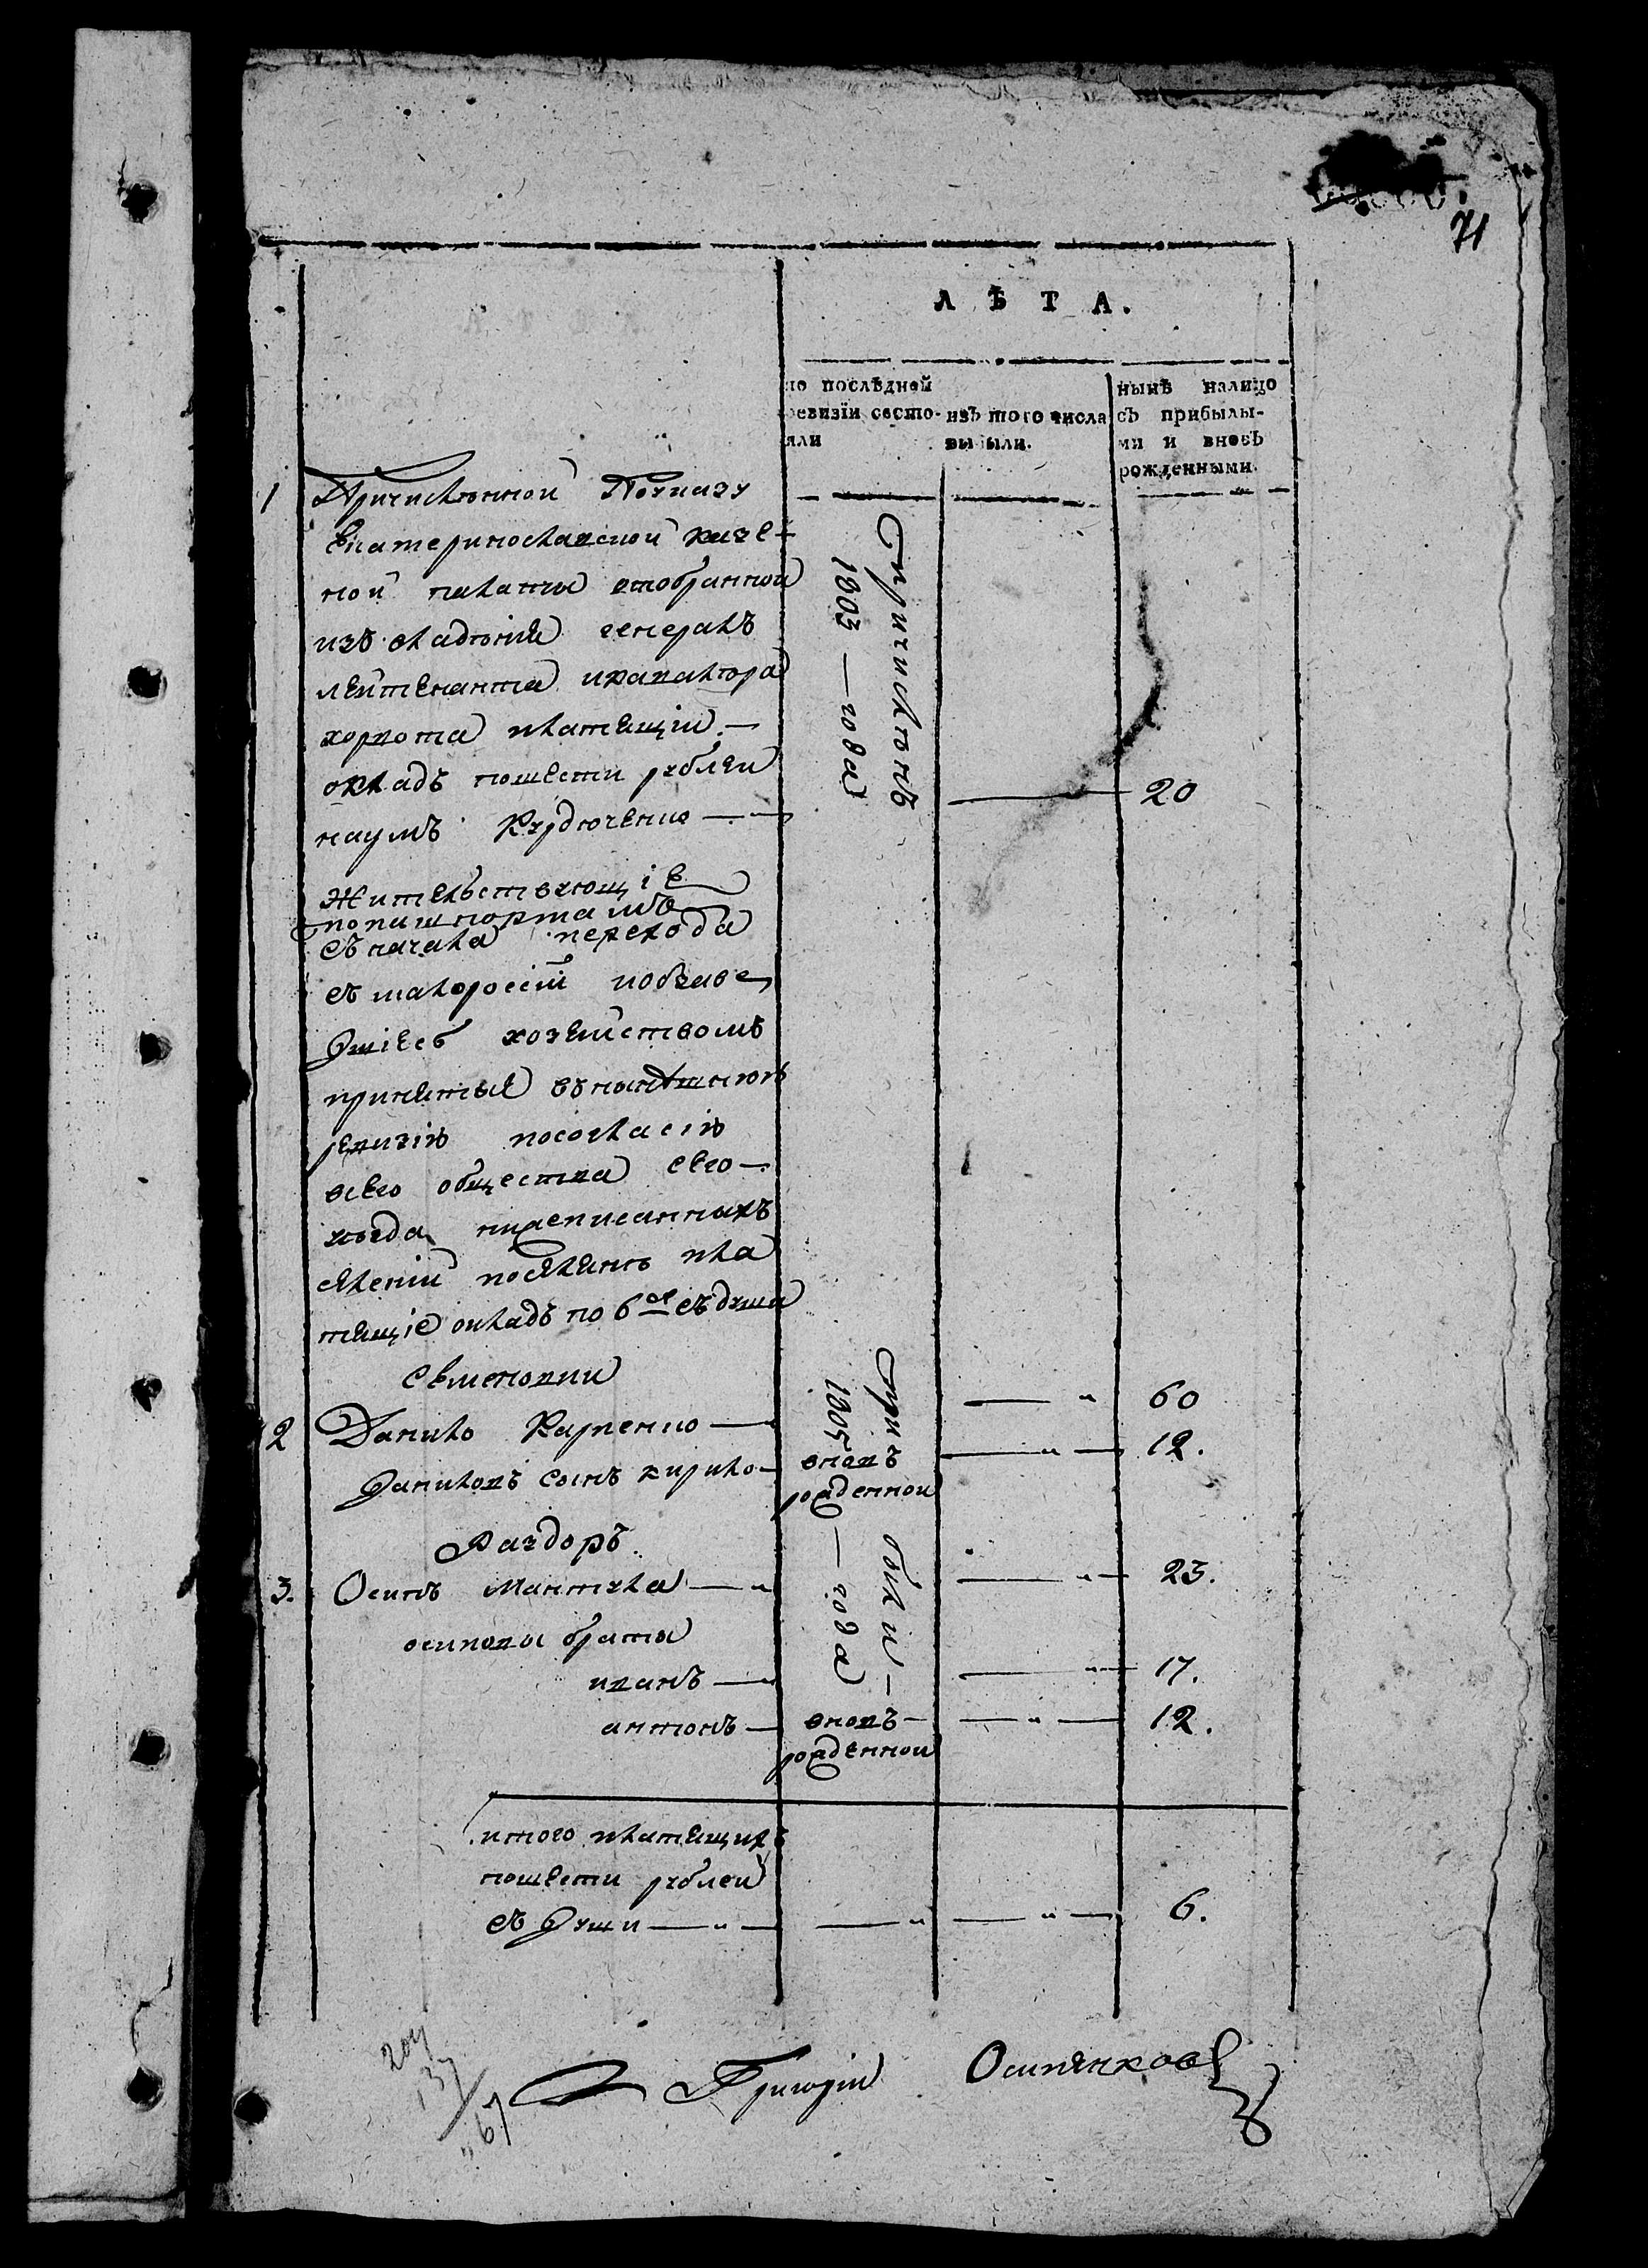 71
ЛѢТА.
по послѣдней ревизіи состо-
яли
изъ того числа
выбыли.
нынѣ налицо
съ прибылы-
ми и вновь
рожденными.
1 Причисленной Поуказу
Екатеринославской казе-
ной палаты отобранной
изъ владѣнія генералъ
лейтенанта икавалѣра
хорвота платящій —
окладъ пошести рублей
наумъ Курдюченко —
причисленъ
1803 — года
20
Жительствующіе
попашпортамъ
съ начала перехода
съ малоросіи
хозяйствомъ
принятые въ нынѣшнюю
ревизію посогласію
всего общества
нижеписанныхъ
селеній поселянъ пла
тящіе окладъ по 6 ру съ души
Семеновки
2 Данило Карпенко —
60
Даниловъ сынъ кирило —
вновь
рожденной
12.
прибыли —
1805 — года
Раздоръ
3. Осипъ Мантула —
23.
осиповы братья
иванъ —
17.
антонъ —
вновь —
рожденной
12.
итого платящихъ
пошести рублей
съ души —
6.
204
137
67
Григорій Осипянковъ